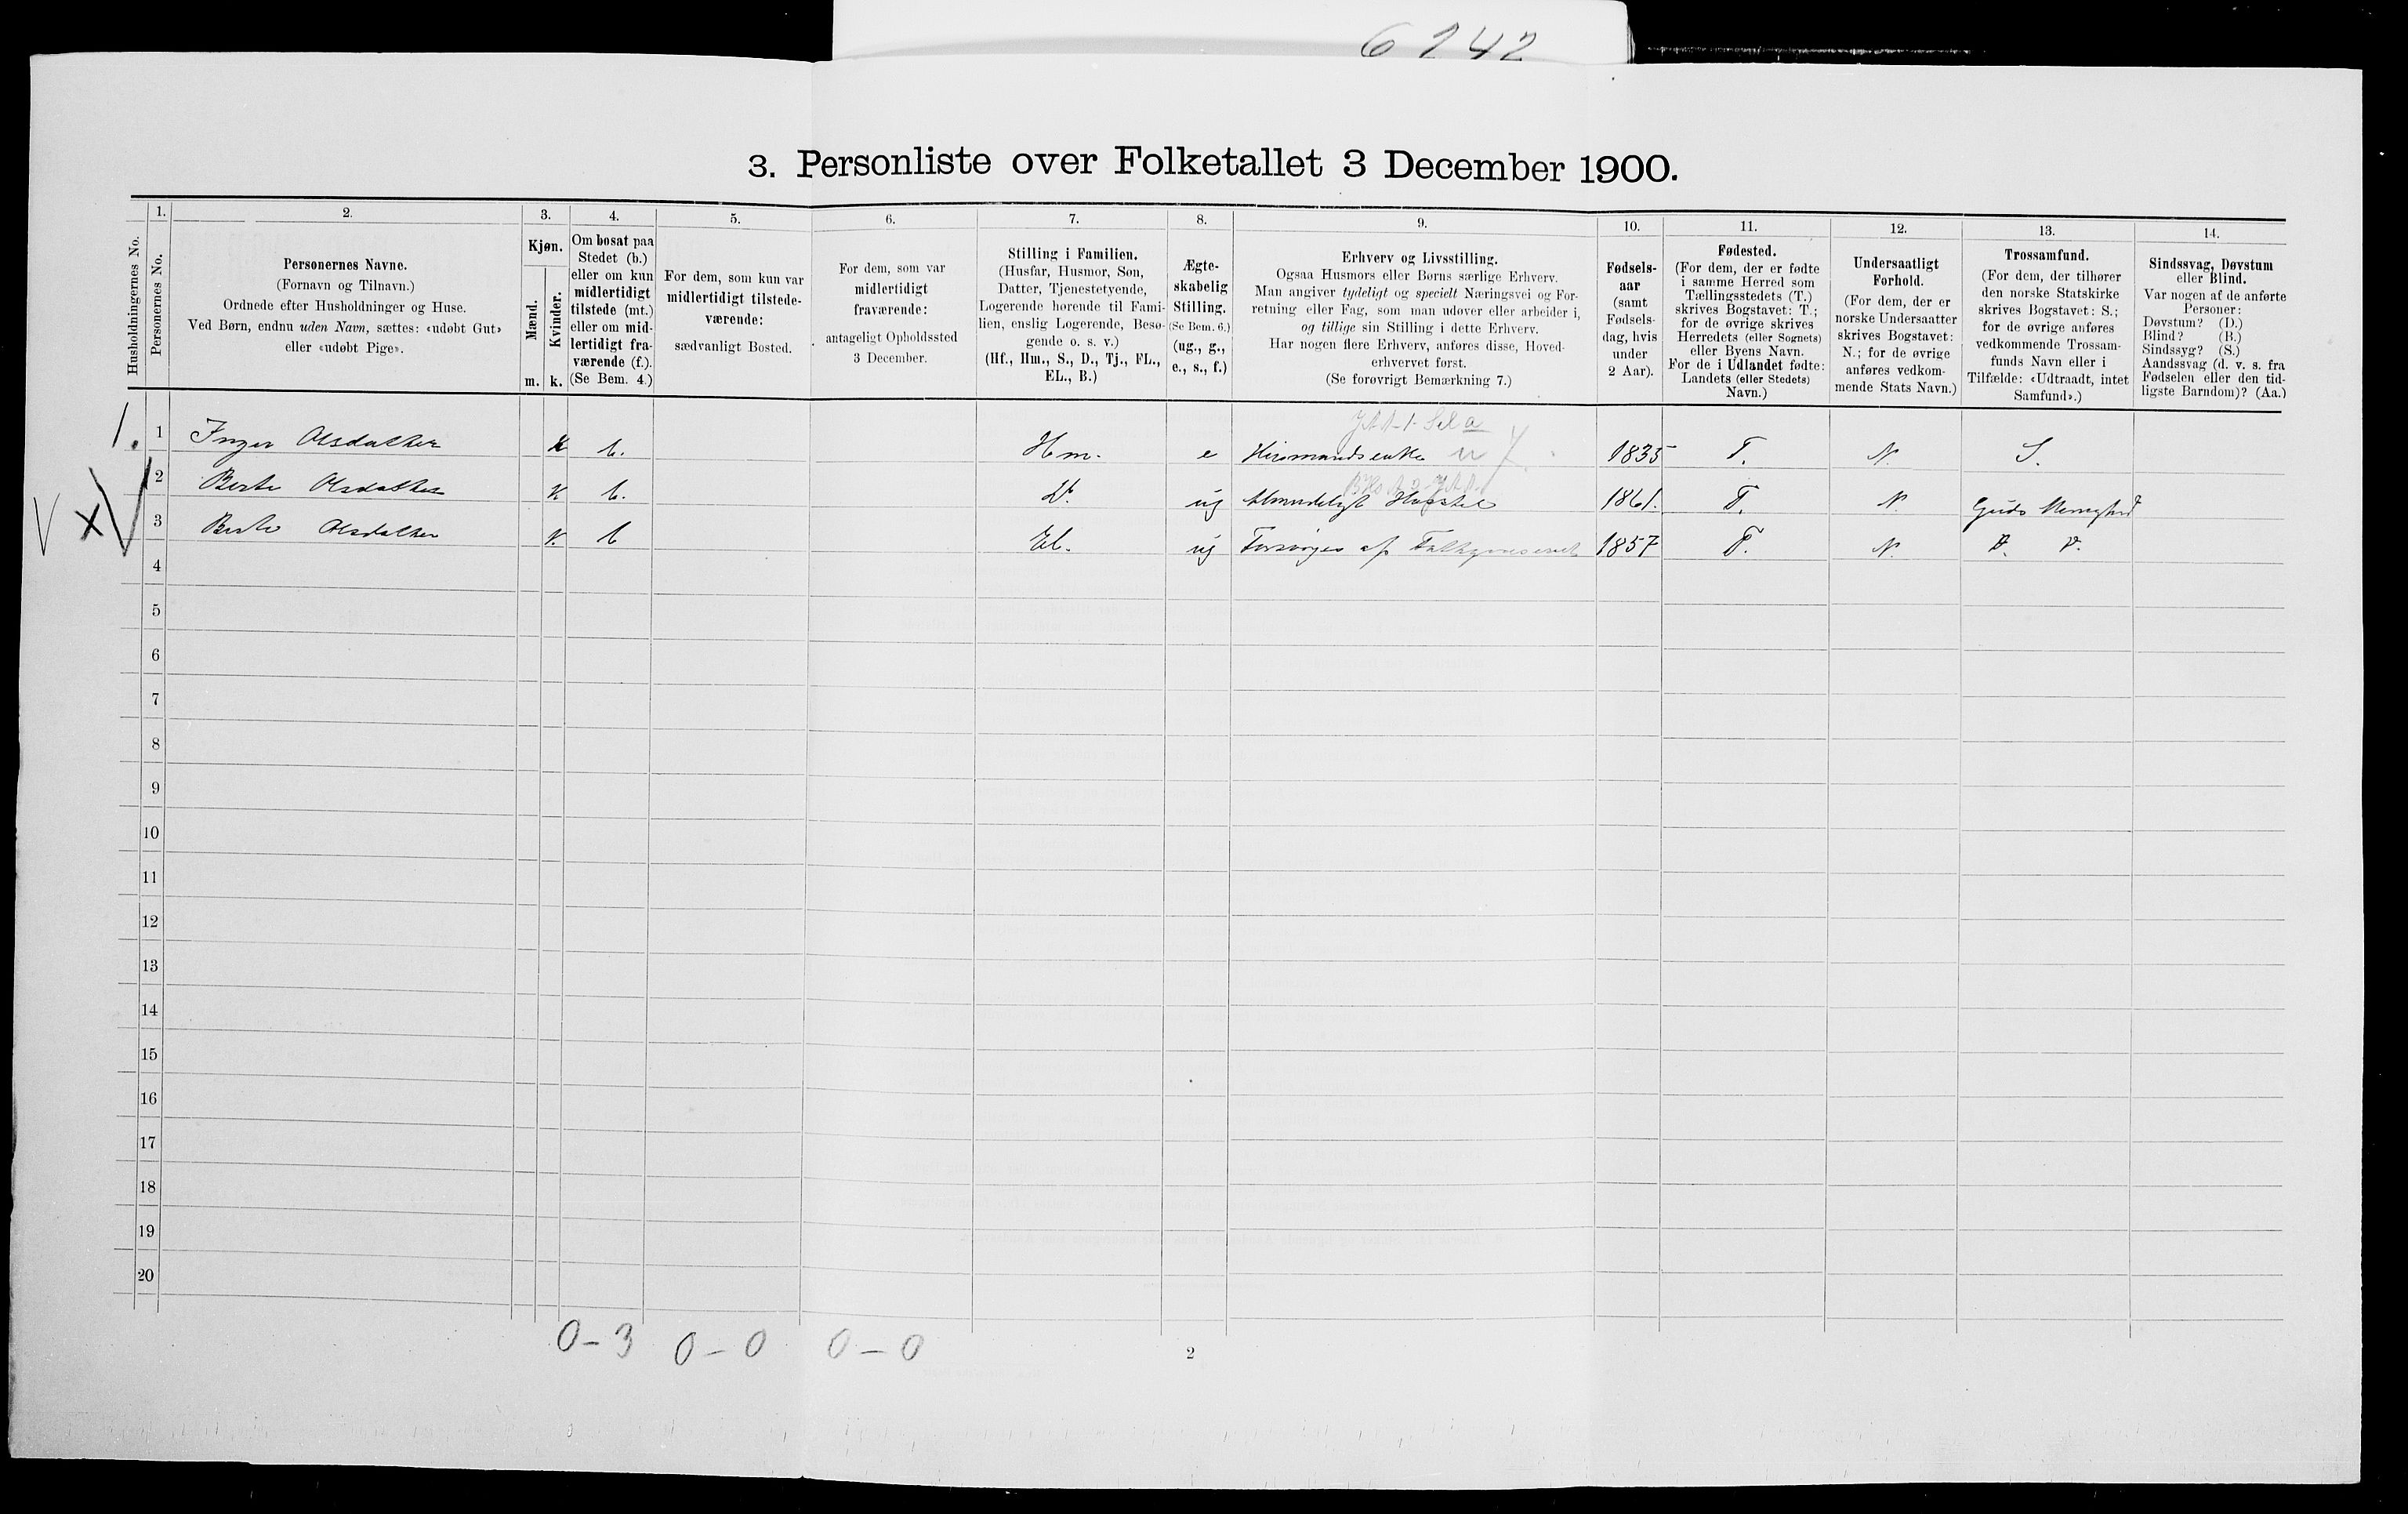 6242
3. Personliste over Folketallet 3 December 1900.
Husholdningernes No.
1.
Personernes No.
2.
Personernes Navne.
(Fornavn og Tilnavn.)
Ordnede efter Husholdninger og Huse.
Ved Børn, endnu uden Navn, sættes: «udøbt Gut»
eller «udøbt Pige».
3.
Kjøn.
Mænd.
Kvinder.
m. k.
4.
Om bosat paa
Stedet (b.)
eller om kun
midlertidigt
tilstede (mt.)
eller om mid-
lertidigt fra-
værende (f.).
(Se Bem. 4.)
5.
For dem, som kun var
midlertidigt tilstede-
værende:
sædvanligt Bosted.
6.
For dem, som var
midlertidigt
fraværende:
antageligt Opholdssted
3 December.
7.
Stilling i Familien.
(Husfar, Husmor, Søn,
Datter, Tjenestetyende,
Logerende hørende til Fami-
lien, enslig Logerende, Besø-
gende o. s. v.)
(Hf., Hm., S., D., Tj., FL.,
EL., B.)
8.
Ægte-
skabelig
Stilling.
(Se Bem. 6.)
(ug., g.,
e., s., f.)
9.
Erhverv og Livsstilling.
Ogsaa Husmors eller Børns særlige Erhverv.
Man angiver tydeligt og specielt Næringsvei og For-
retning eller Fag, som man udøver eller arbeider i,
og tillige sin Stilling i dette Erhverv.
Har nogen flere Erhverv, anføres disse, Hoved-
erhvervet først.
(Se forøvrigt Bemærkning 7.)
10.
Fødsels-
aar
(samt
Fødsels-
dag, hvis
under
2 Aar).
11.
Fødested.
(For dem, der er fødte
i samme Herred som
Tællingsstedets (T.)
skrives Bogstavet: T.;
for de øvrige skrives
Herredets (eller Sognets)
eller Byens Navn.
For de i Udlandet fødte:
Landets (eller Stedets)
Navn.)
12.
Undersaatligt
Forhold.
(For dem, der er
norske Undersaatter
skrives Bogstavet:
N.; for de øvrige
anføres vedkom-
mende Stats Navn.)
13.
Trossamfund.
(For dem, der tilhører
den norske Statskirke
skrives Bogstavet: S.;
for de øvrige anføres
vedkommende Trossam-
funds Navn eller i
Tilfælde: «Udtraadt, intet
Samfund».)
14.
Sindssvag, Døvstum
eller Blind.
Var nogen af de anførte
Personer:
Døvstum? (D.)
Blind? (B.)
Sindssyg? (S.)
Aandssvag (d. v. s. fra
Fødselen eller den tid-
ligste Barndom)? (Aa.)
1. 1 Inger Olsdatter K b. Hm. e 1835 T. N. S.
2 Berte Olsdatter K b. D. ug 1861. T. N. Guds Menighed
3 Berte Olsdatter K. b El. ug Forsørges af Fattigvæsenet 1857 T. N. D. D.
4
5
6
7
8
9
10
11
12
13
14
15
16
17
18
19
20
0-3 0-0 0-0
2